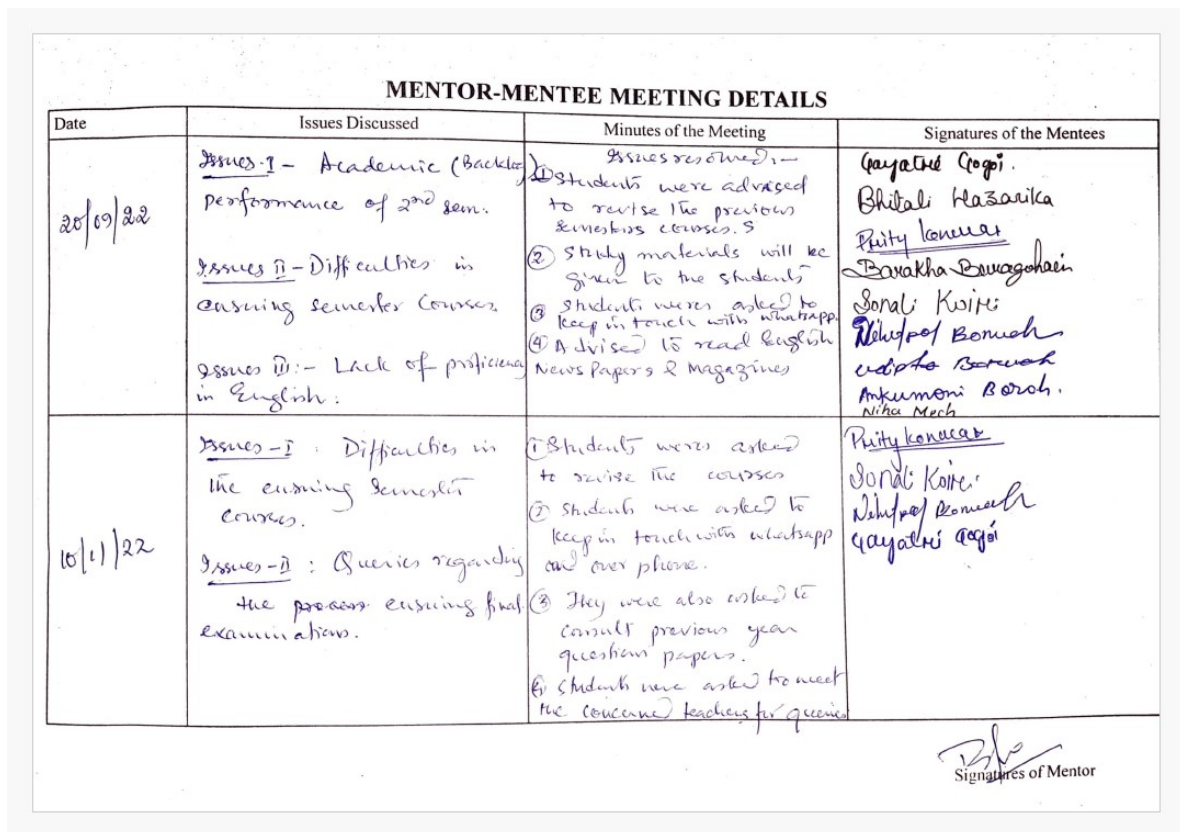 MENTOR-MENTEE MEETING DETAILS
Date
Issues Discussed
Minutes of the Meeting
Signatures of the Mentees
20/09/22
Issues-I - Academic (Backlog)
performance of 2nd sem.
Issues II - Difficulties in
ensuing semester courses.
Issues III :- Lack of proficiency
in English :
Issues resolved :-
① Students were advised
to revise the previous
semesters courses. S
② Study materials will be
given to the students
③ Students were asked to
keep in touch with whatsapp.
④ Advised to read English
News Papers & Magazines
Gayatri Gogoi.
Bhitali Hazarika
Prity Konwar
Barakha Bouragohain
Sonali Koiri
Boruah
Boruah
Ankumoni Boroh.
Niha Mech
10/11/22
Issues-I : Difficulties in
the ensuing semester
courses.
Issues-II : Queries regarding
the process ensuing final
examinations.
① Students were asked
to revise the courses
② Students were asked to
keep in touch with whatsapp
and over phone.
③ They were also asked to
consult previous year
question papers.
④ Students were asked to meet
the concerned teachers for queries
Prity Konwar
Sonali Koiri
Boruah
Gayatri Gogoi
Signatures of Mentor